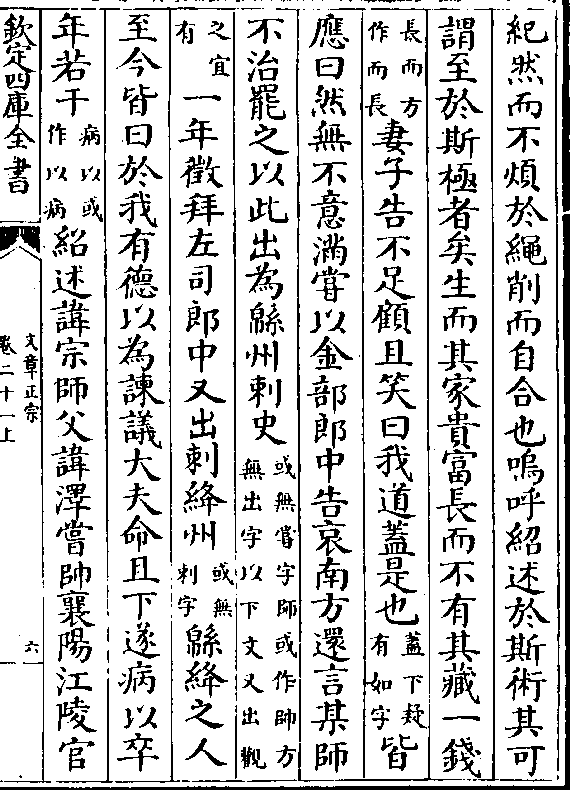 紀然而不煩於繩削而自合也嗚呼紹述於斯術其可
謂至於斯極者矣生而其家貴富長而不有其藏一錢
長而方作而長妻子告不足顧且笑曰我道蓋是也蓋下疑有如字皆
應曰然無不意滿嘗以金部郎中告哀南方還言某師
不治罷之以此出為緜州刺史或無嘗字師或作帥方無出字以下文又出觀
之宜有一年徵拜左司郎中又出刺絳州或無刺字緜絳之人
至今皆曰於我有德以為諫議大夫命且下遂病以卒
年若干病以或作以病紹述諱宗師父諱澤嘗帥襄陽江陵官
欽定四庫全書
文章正宗
卷二十一上
六